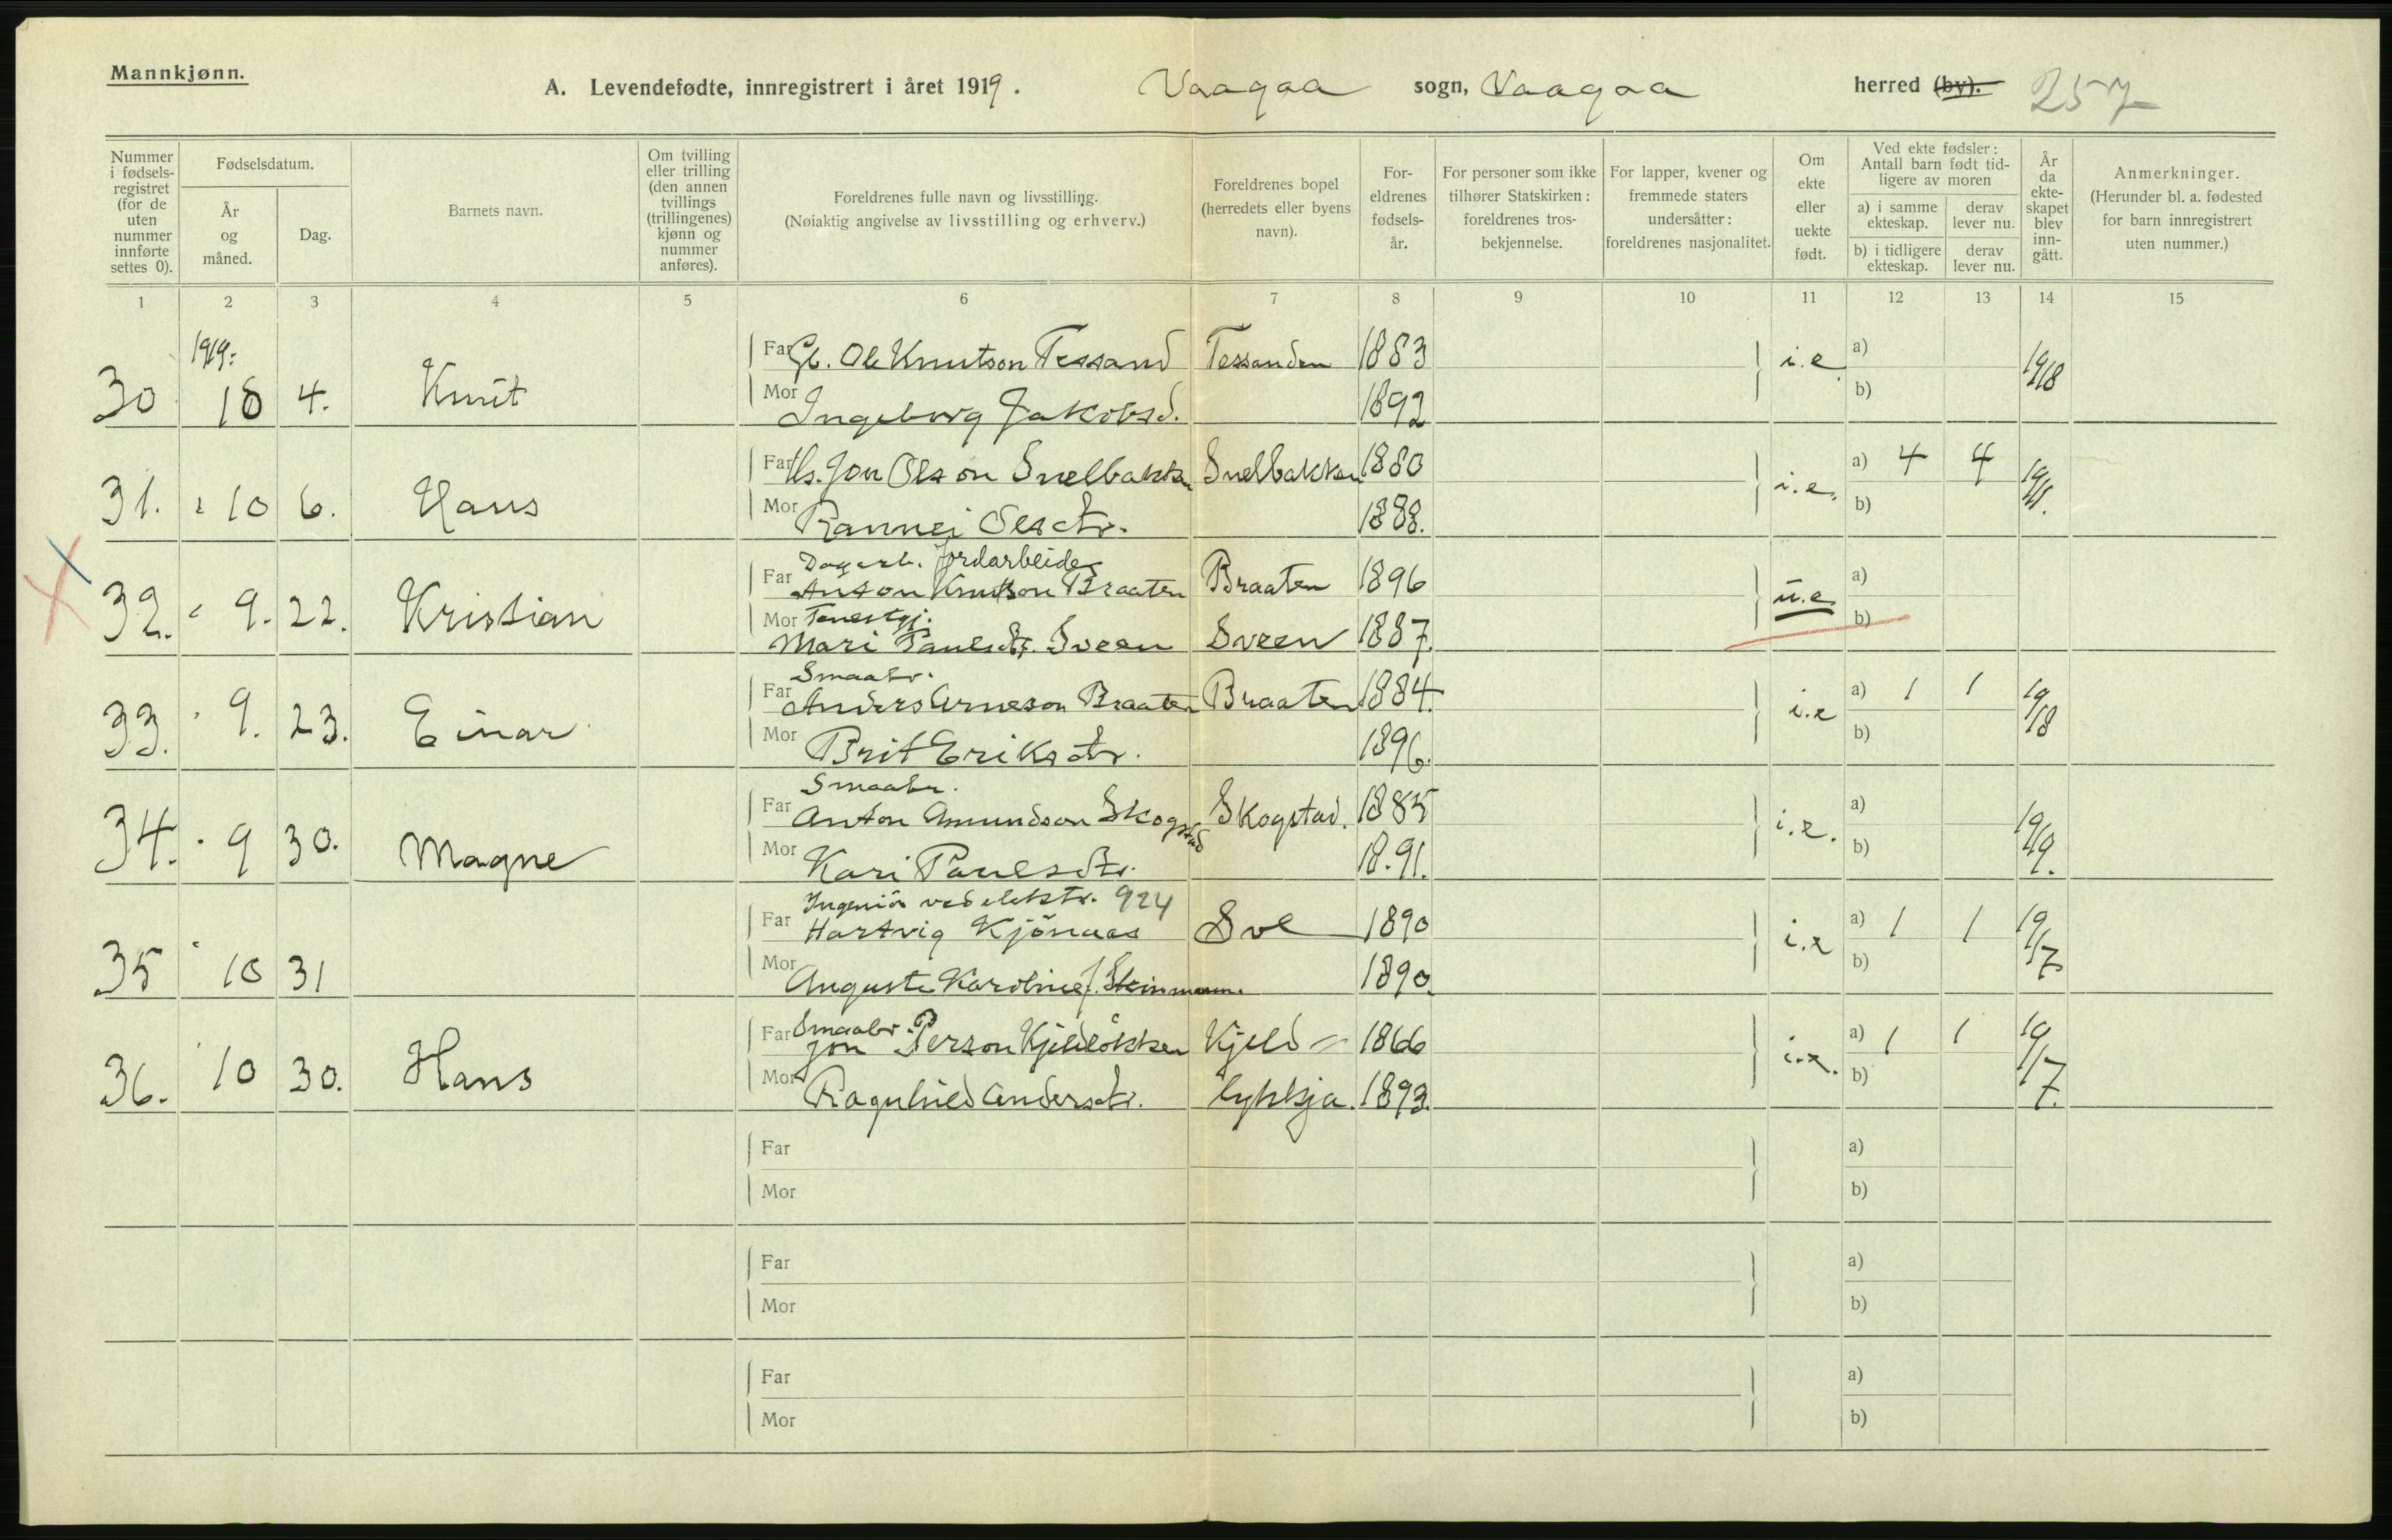 Mannkjønn.
A. Levendefødte, innregistrert i året 1919. Vaagaa sogn, Vaagaa herred (by). 257
Nummer i fødsels- registret (for de uten nummer innførte settes 0).
Fødselsdatum.
År og måned.
Dag.
Barnets navn.
Om tvilling eller trilling (den annen tvillings (trillingenes) kjønn og nummer anføres).
Foreldrenes fulle navn og livsstilling.
(Nøiaktig angivelse av livsstilling og erhverv.)
Foreldrenes bopel (herredets eller byens navn).
For- eldrenes fødsels- år.
For personer som ikke tilhører Statskirken: foreldrenes tros- bekjennelse.
For lapper, kvener og fremmede staters undersåtter: foreldrenes nasjonalitet.
Om ekte eller uekte født.
Ved ekte fødsler: Antall barn født tid- ligere av moren
a) i samme ekteskap.
derav lever nu.
b) i tidligere ekteskap.
derav lever nu.
År da ekte- skapet blev inn- gått.
Anmerkninger.
(Herunder bl. a. fødested for barn innregistrert uten nummer.)
1 2 3 4 5 6 7 8 9 10 11 12 13 14 15
1919:
30 10 4. Knut
Far Gb. Ole Knutson Tessand Tessanden 1883 i.e. a) 1918
Mor Ingeborg Jakobsd. 1892 b)
31. " 10 6. Hans
Far Hs. Jon Olson Snelbakken Snelbakken 1880 i.e. a) 4 4
Mor Rannei Olsdtr. 1888. b)
32. " 9. 22. Kristian
Dagarb. jordarbeider
Far Anton Knutson Braaten Braaten 1896 u.e. a)
Mor Tenestgj.
Mari Paulsdtr. Sveen Sveen 1887. b)
33. " 9. 23. Einar
Smaabr.
Far Anders Arneson Braaten Braaten 1884. i.e a) 1 1 1918
Mor Brit Eriksdtr. 1896. b)
34. " 9 30. Magne
Smaabr.
Far Anton Amundson Skogstad Skogstad. 1885 i.e. a) 1919.
Mor Kari Paulsdtr. 18.91. b)
35 " 10 31
Ingeniör ved elektr. 924
Far Hartvig Kjönaas Sve 1890 i.e a) 1 1 1917
Mor Auguste Karoline f. Steinmann. 1890. b)
36. " 10 30. Hans
Far Smaabr. Jon Person Kjeldlökken Kjeld= 1866 i.e. a) 1 1 1917.
Mor Ragnhild Andersdtr. lykkja. 1893. b)
Far a)
Mor b)
Far a)
Mor b)
Far a)
Mor b)